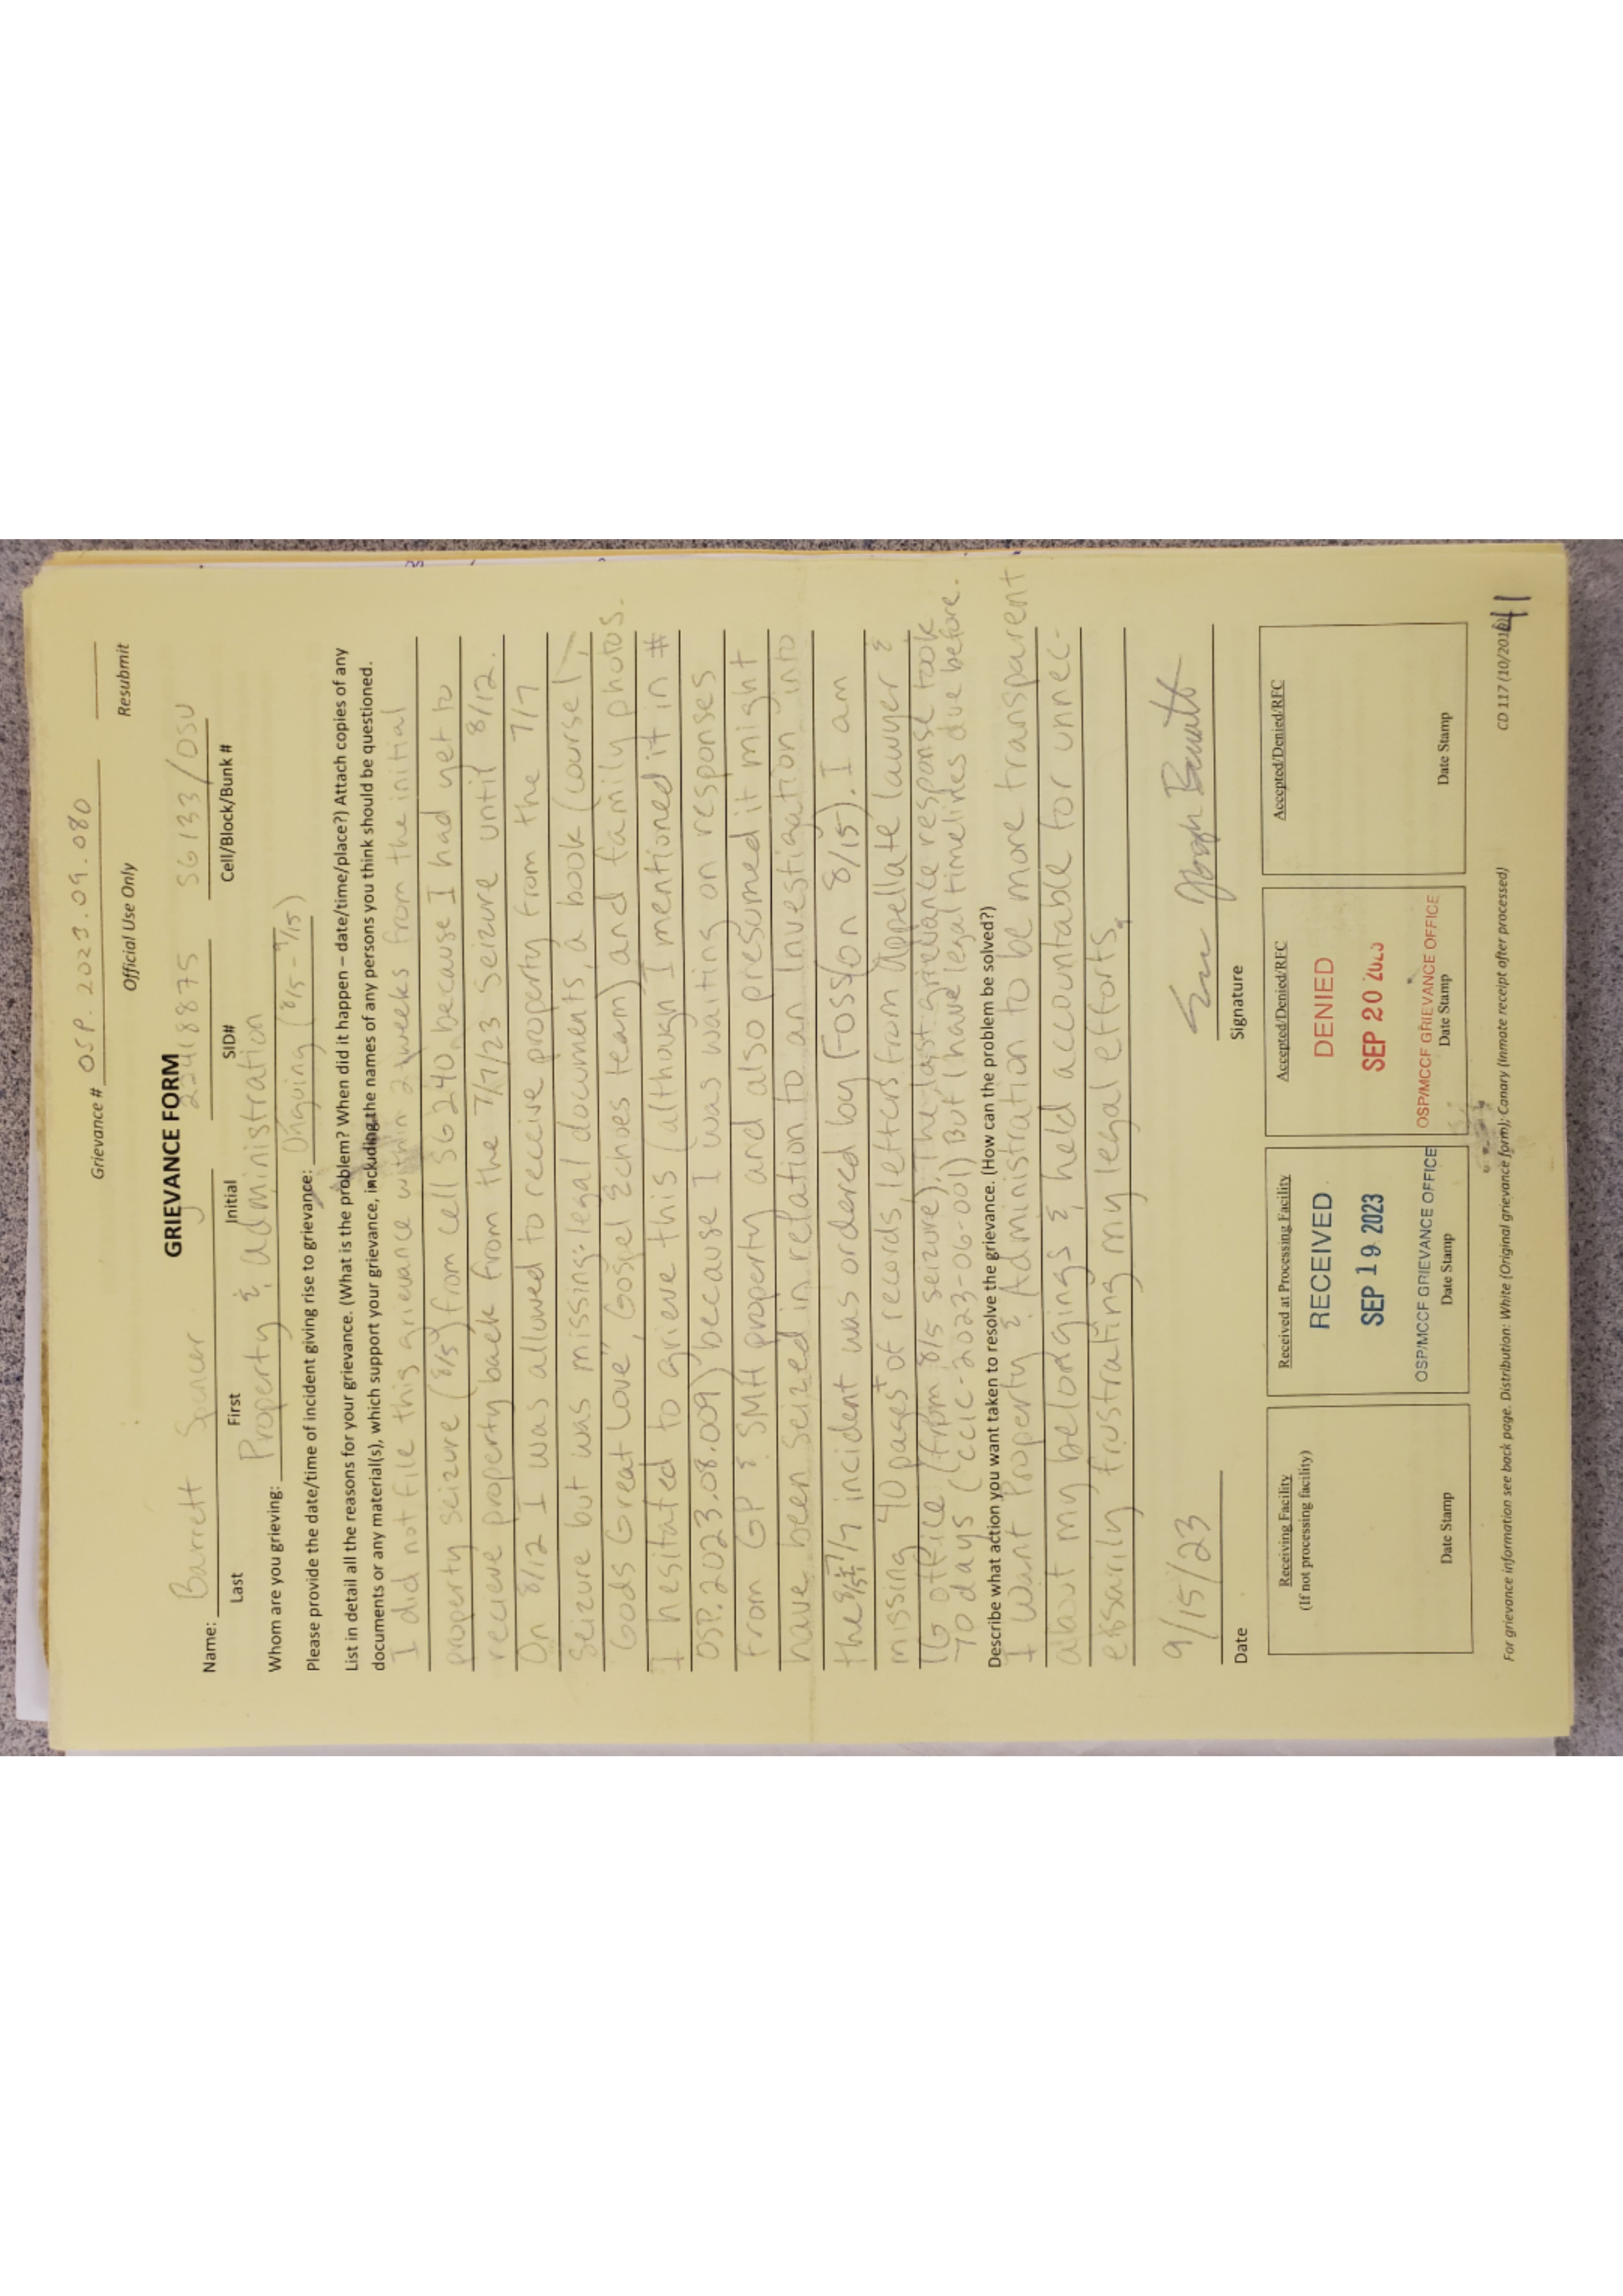 Grievance # OSP.2023.09.080
Official Use Only Resubmit
GRIEVANCE FORM
Name: Barrett Spencer J 22418875 SG133/DSU
Last First Initial SID# Cell/Block/Bunk #
Whom are you grieving: Property & administration
Please provide the date/time of incident giving rise to grievance: Ongoing (8/15 - 9/15)
List in detail all the reasons for your grievance. (What is the problem? When did it happen – date/time/place?) Attach copies of any
documents or any material(s), which support your grievance, including the names of any persons you think should be questioned.
I did not file this grievance within 2 weeks from the initial
property seizure (8/5) from cell SG240 because I had yet to
recieve property back from the 7/7/23 seizure until 8/12.
On 8/12 I was allowed to recieve property from the 7/7
seizure but was missing: legal documents, a book (course 1,
"Gods Great Love", Gospel Echoes team) and family photos.
I hesitated to grieve this (although I mentioned it in #
OSP.2023.08.009) because I was waiting on responses
from GP & SMH property and also presumed it might
have been seized in relation to an Investigation into
the 7/7 incident was ordered by (Foss) on 8/15). I am
missing 40 pages+ of records, letters from appellate lawyer &
IG office (from 8/15 seizure). The last grievance response took
70 days (CCIC-2023-06-001) But I have legal timelines due before.
Describe what action you want taken to resolve the grievance. (How can the problem be solved?)
I want Property & Administration to be more transparent
about my belongings & held accountable for unnec-
essarily frustrating my legal efforts.
9/15/23
Date Signature
Receiving Facility
(If not processing facility)
Date Stamp
Received at Processing Facility
RECEIVED
SEP 19 2023
OSP/MCCF GRIEVANCE OFFICE
Date Stamp
Accepted/Denied/RFC
DENIED
SEP 20 2023
OSP/MCCF GRIEVANCE OFFICE
Date Stamp
Accepted/Denied/RFC
Date Stamp
For grievance information see back page. Distribution: White (Original grievance form); Canary (Inmate receipt after processed) CD 117 (10/2019)
41